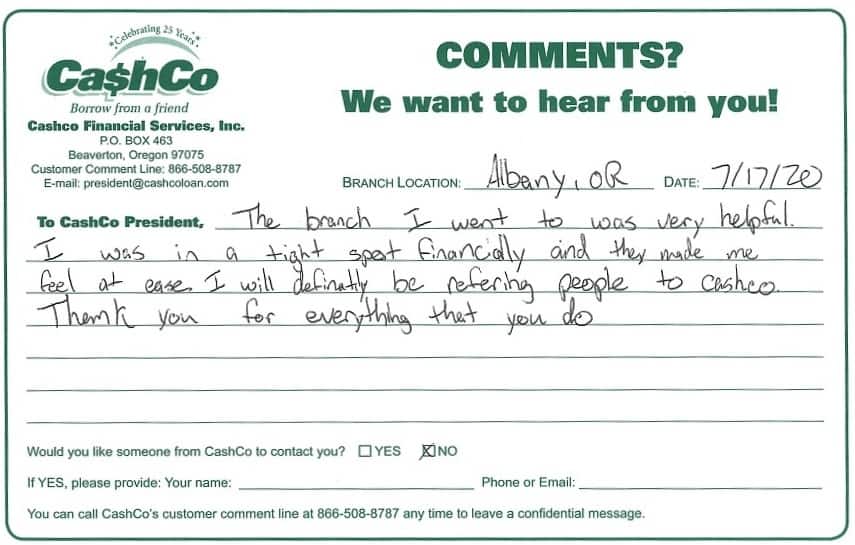 Celebrating 25 Years
Ca$hCo
Borrow from a friend
Cashco Financial Services, Inc.
P.O. BOX 463
Beaverton, Oregon 97075
Customer Comment Line: 866-508-8787
E-mail: president@cashcoloan.com
COMMENTS?
We want to hear from you!
BRANCH LOCATION: Albany, OR DATE: 7/17/20
To CashCo President, The branch I went to was very helpful.
I was in a tight spot financially and they made me
feel at ease. I will definatly be refering people to cashco.
Thank you for everything that you do
Would you like someone from CashCo to contact you? ☐ YES ☒ NO
If YES, please provide: Your name: Phone or Email:
You can call CashCo's customer comment line at 866-508-8787 any time to leave a confidential message.